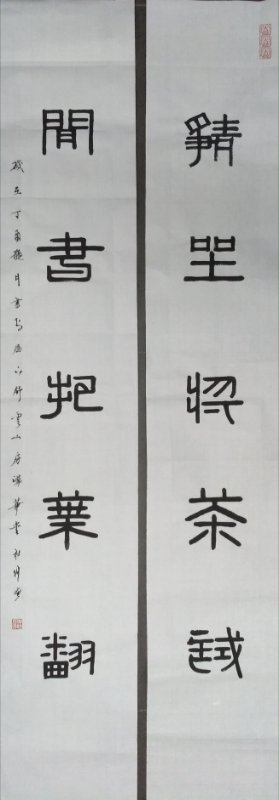 靜坐將茶試
閒書把葉翻
歲在丁酉臘月書於 雲山房